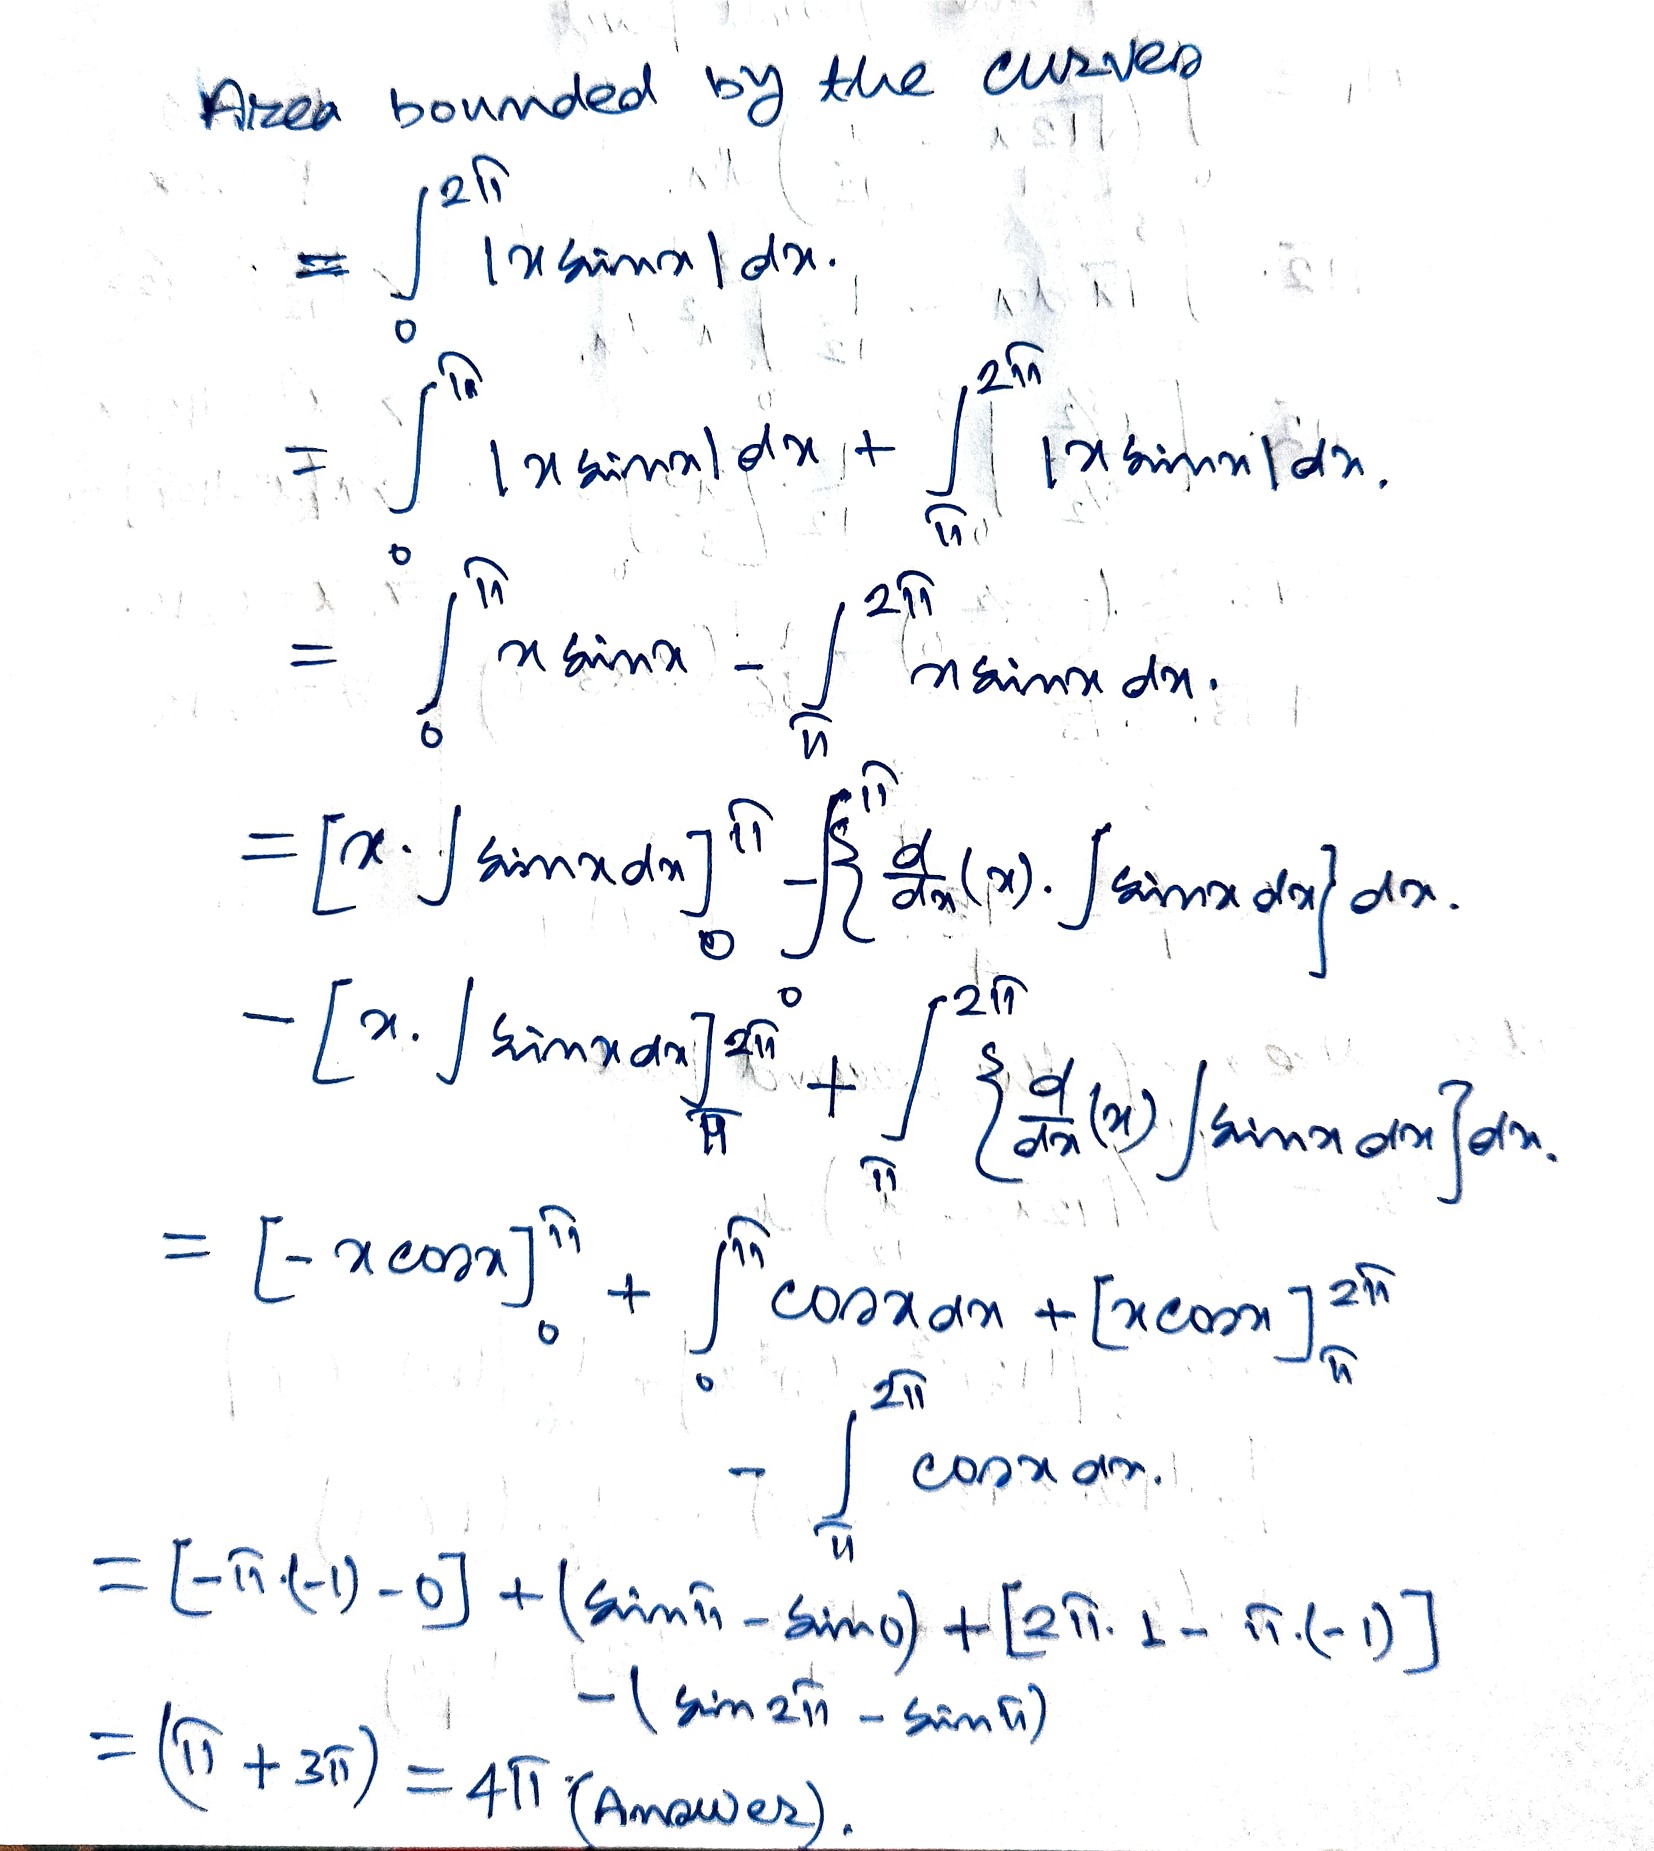 Area bounded by the curves
= ∫₀^{2π} |x sinx| dx.
= ∫₀^{π} |x sinx| dx + ∫_{π}^{2π} |x sinx| dx.
= ∫₀^{π} x sinx - ∫_{π}^{2π} x sinx dx.
= [x. ∫ sinx dx]₀^{π} - ∫₀^{π} { d/dx (x). ∫ sinx dx } dx.
- [x. ∫ sinx dx]_{π}^{2π} + ∫_{π}^{2π} { d/dx (x) ∫ sinx dx } dx.
= [- x cosx]₀^{π} + ∫₀^{π} cosx dx + [x cosx]_{π}^{2π}
- ∫_{π}^{2π} cosx dx.
= [-π.(-1) - 0] + (sinπ - sin0) + [2π. 1 - π.(-1)]
- (sin2π - sinπ)
= (π + 3π) = 4π (Answer).